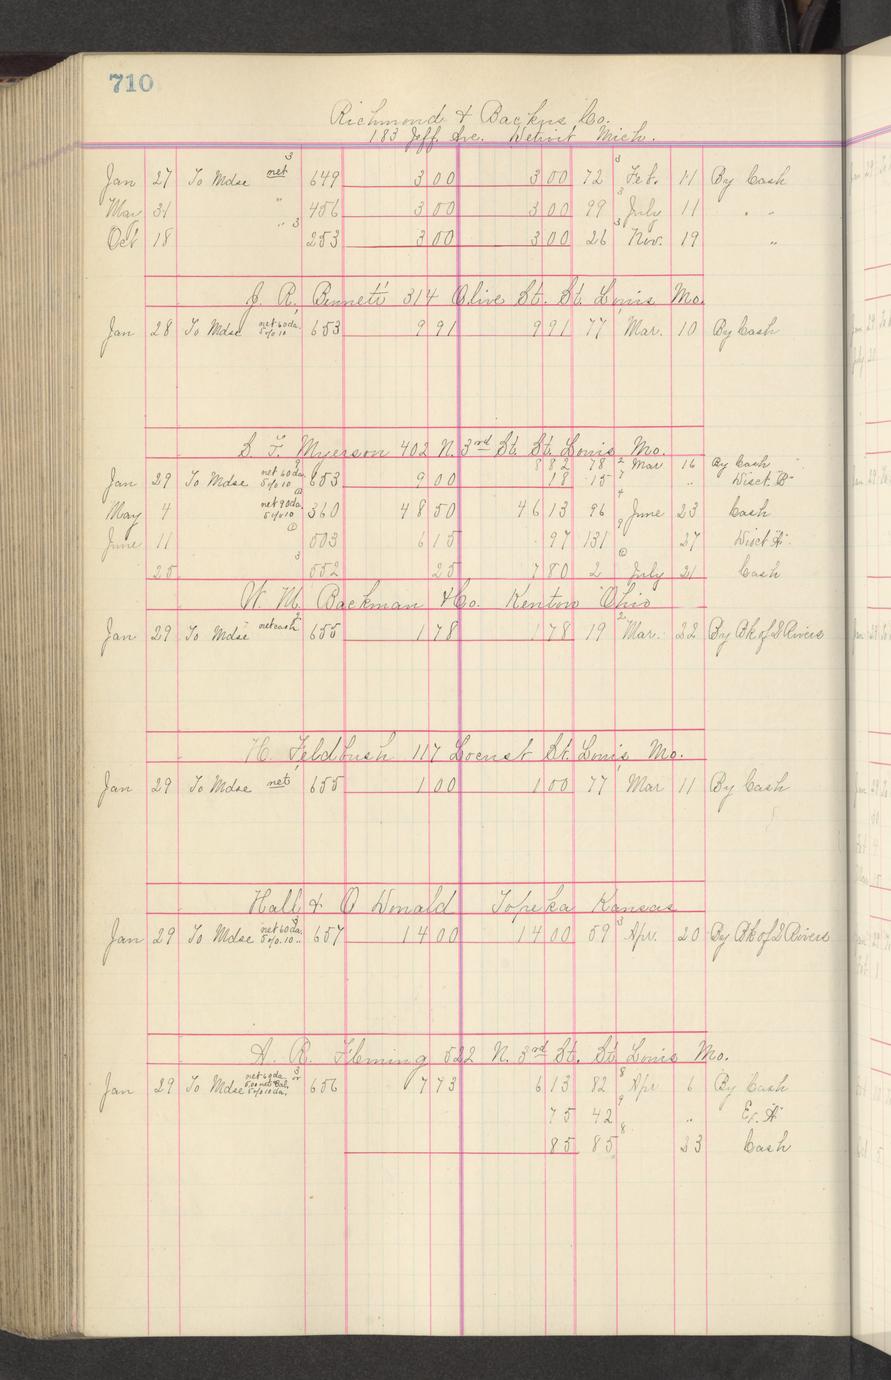 710
Richmond & Backus Co.
183 Jeff. Ave. Detroit Mich.
Jan 27 To Mdse net 3 649 3 00 3 00 72 3 Feb. 11 By Cash
May 31 " 456 3 00 3 00 99 3 July 11 " "
Oct 18 " 3 253 3 00 3 00 26 3 Nov. 19 "
J. R. Bennett 314 Olive St. St. Louis Mo.
Jan 28 To Mdse net 60 da. 5% 10 653 9 91 9 91 77 Mar. 10 By Cash
S. F. Myerson 402 N. 3rd St. St. Louis Mo.
8 82 78 2 Mar 16 By Cash
Jan 29 To Mdse net 60 da. 5% 10 653 9 00 18 15 7 " Disct. B
May 4 net 90 da. 5% 10 360 48 50 46 13 96 4 June 23 Cash
June 11 503 6 15 97 131 9 27 Disct A
25 3 552 25 7 80 2 July 21 Cash
W. M. Backman & Co. Kenton Ohio
Jan 29 To Mdse net cash 2 655 1 78 1 78 19 2 Mar. 22 By Bk of 3 Rivers
H. Feldbush 117 Locust St. Louis Mo.
Jan 29 To Mdse net 655 1 00 1 00 77 Mar 11 By Cash
Hall & O Donald Topeka Kansas
Jan 29 To Mdse net 60 da. 5% 10 .. 3 657 14 00 14 00 59 3 Apr. 20 By Bk of 3 Rivers
A. R. Fleming 522 N. 3rd St. St. Louis Mo.
Jan 29 To Mdse net 60 da. 5% 10 da. 656 7 73 6 13 82 8 Apr 6 By Cash
75 42 9 " Er. A
85 85 8 23 Cash